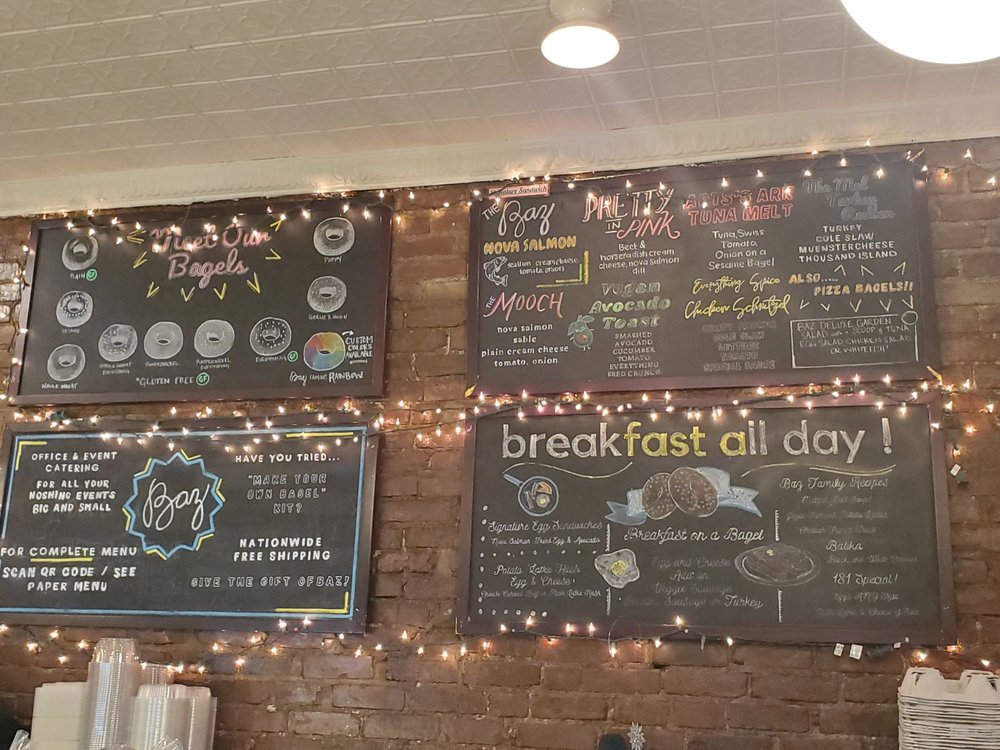 Meet Our
Bagels
PLAIN GF
POPPY
SESAME
GARLIC & ONION
WHOLE WHEAT
WHOLE WHEAT
EVERYTHING
PUMPERNICKEL
PUMPERNICKEL
EVERYTHING
EVERYTHING
CUSTOM
COLORS
AVAILABLE
Baz FAMOUS RAINBOW
*GLUTEN FREE GF
Signature Sandwich
THE Baz
NOVA SALMON
scallion creamcheese
tomato, onion
THE MOOCH
nova salmon
sable
plain cream cheese
tomato, onion
PRETTY
IN PINK
Beet &
horseradish cream
cheese, nova salmon
dill
Vegan
Avocado
Toast
SMASHED
AVOCADO
CUCUMBER
TOMATO
EVERYTHING
BRED CRUNCH
ARK
TUNA MELT
Tuna, Swiss
Tomato,
Onion on a
Sesame Bagel
Everything Spice
Chicken Schnitzel
COLE SLAW
LETTUCE
TOMATO
SPECIAL SAUCE
The Mel
Turkey
TURKEY
COLE SLAW
MUENSTER CHEESE
THOUSAND ISLAND
ALSO....
PIZZA BAGELS!!
BAZ DELUXE GARDEN
SALAD with a SCOOP of TUNA
EGG SALAD, CHICKEN SALAD
OR WHITEFISH!
OFFICE & EVENT
CATERING
FOR ALL YOUR
NOSHING EVENTS
BIG AND SMALL
Baz
FOR COMPLETE MENU
SCAN QR CODE / SEE
PAPER MENU
HAVE YOU TRIED...
"MAKE YOUR
OWN BAGEL"
KIT?
NATIONWIDE
FREE SHIPPING
GIVE THE GIFT OF BAZ!
breakfast all day !
Signature Egg Sandwiches
Nova Salmon Fried Egg & Avocado
Potato Latke Hash
Egg & Cheese!
Breakfast on a Bagel
Egg and Cheese
Add on
Veggie Sausage
Sausage or Turkey
Baz Family Recipes
Babka
181 Special!